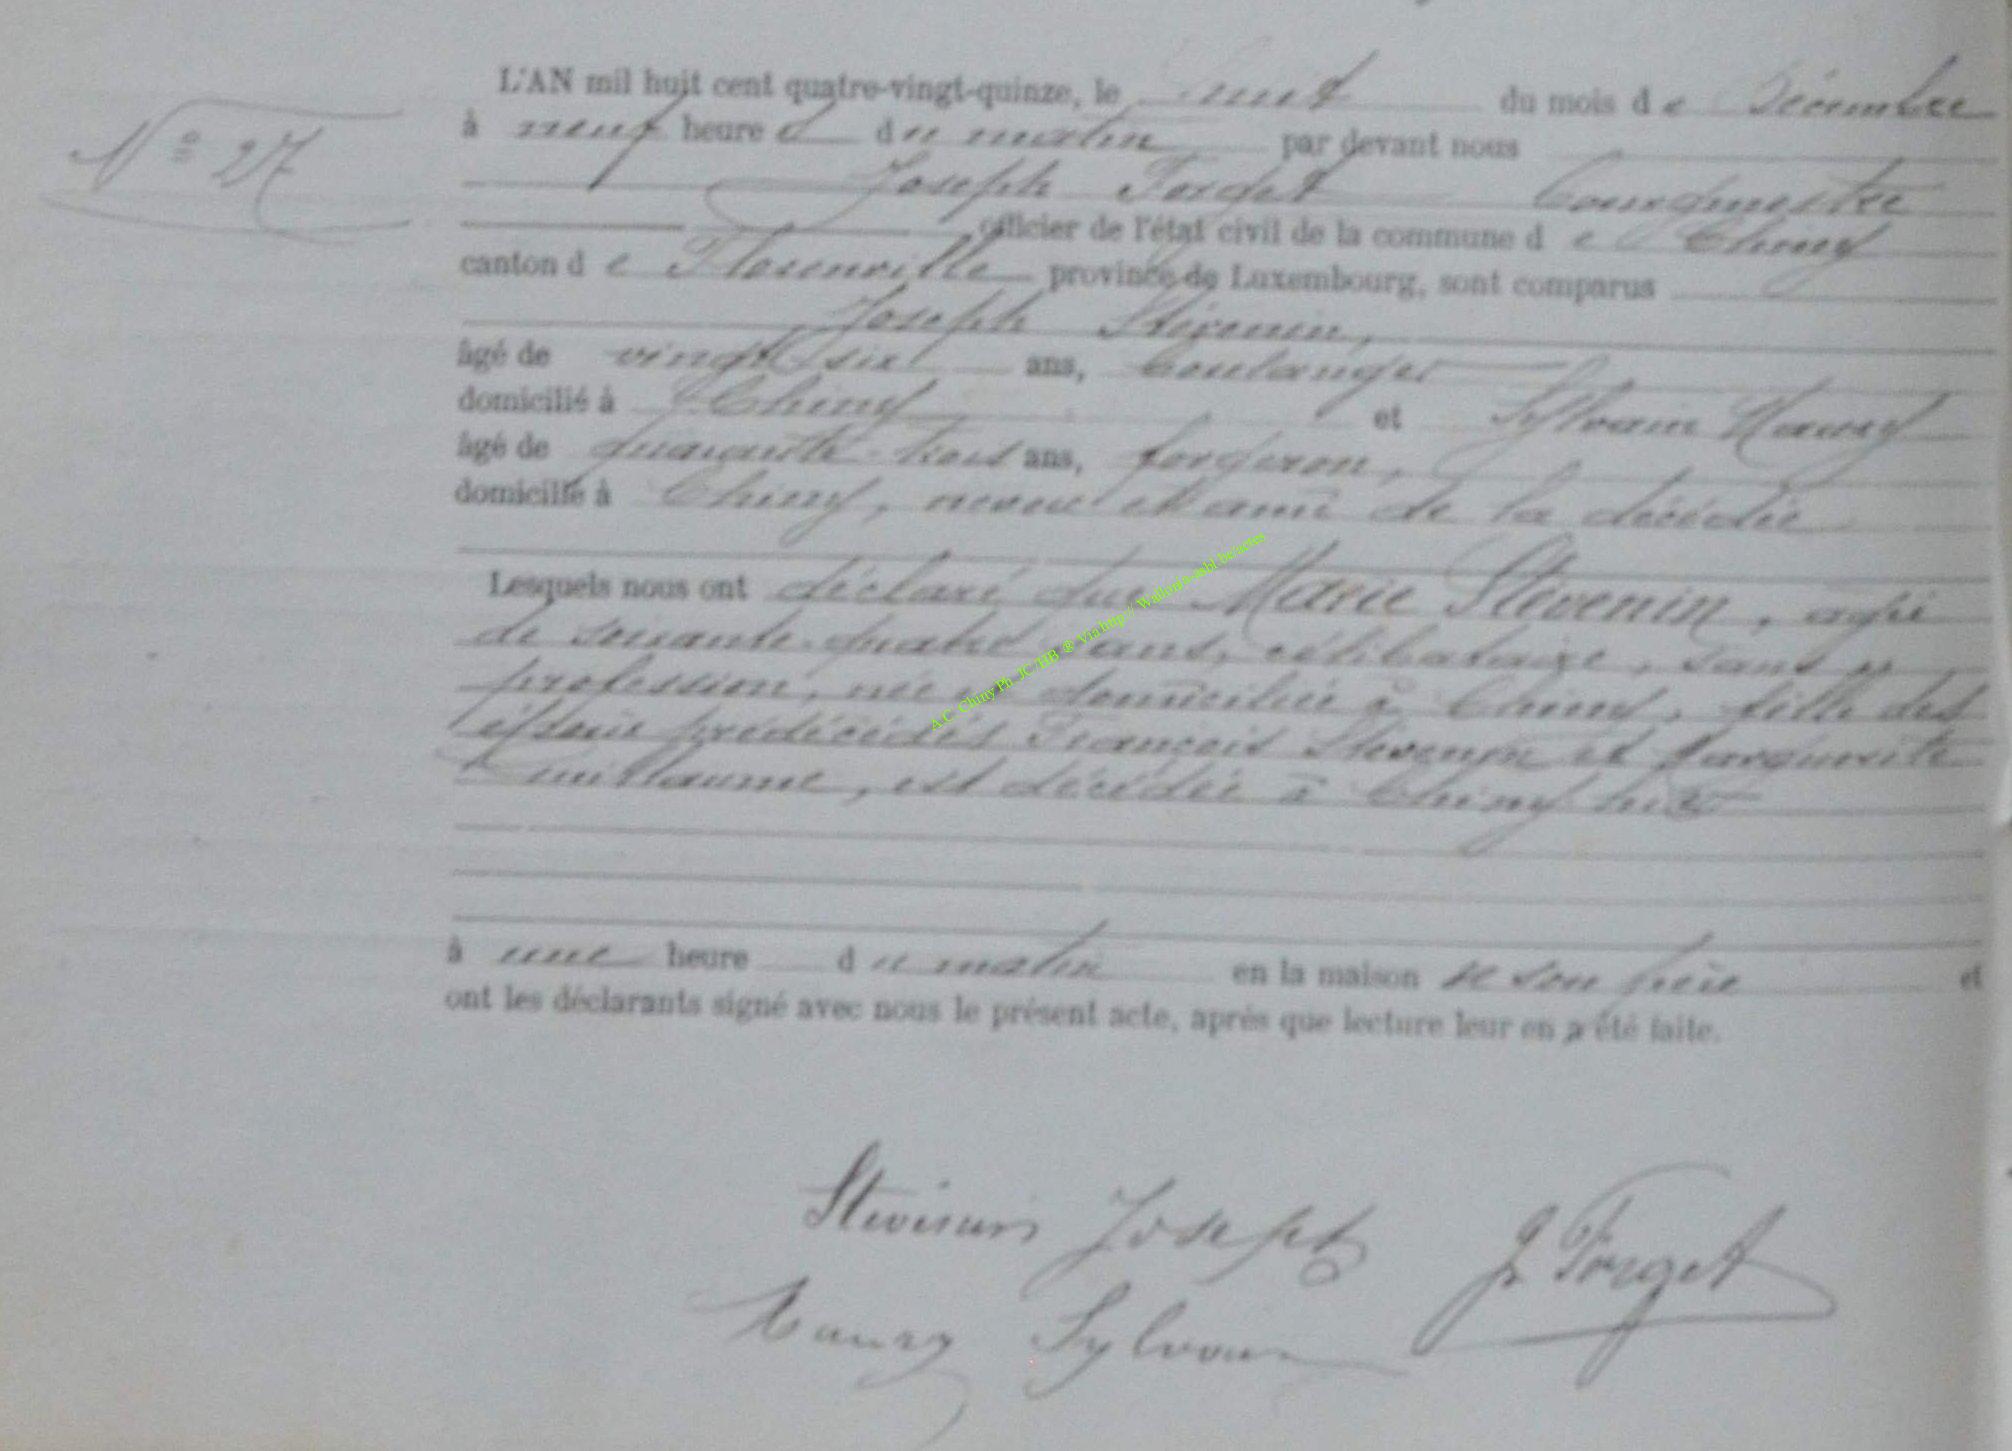 N° 27
L'AN mil huit cent quatre-vingt-quinze, le huit du mois de Décembre
à neuf heures du matin par devant nous
Joseph Forget Bourgmestre
officier de l'état civil de la commune de Chiny
canton de Florenville province de Luxembourg, sont comparus
Joseph Stévenin,
âgé de vingt six ans, boulanger
domicilié à Chiny et Sylvain Maury
âgé de quarante-trois ans, forgeron,
domicilié à Chiny, neveu et ami de la décédée
Lesquels nous ont déclaré que Marie Stévenin, agée
de soixante-quatre ans, célibataire, sans
profession, née et domiciliée à Chiny, fille des
époux prédécédés François Stévenin et Marguerite
Guillaume, est décédée à Chiny hier
à une heure du matin en la maison de son père et
ont les déclarants signé avec nous le présent acte, après que lecture leur en a été faite.
Stévenin Joseph J. Forget
Maury Sylvain
A.C. Chiny Ph. JC HB ® Via http:// Wallonia-asbl.be/actes